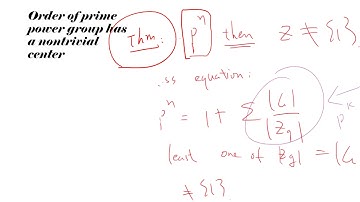 Order of prime
power group has
a nontrivial
center
Thm: pⁿ then Z ≠ {1}
ss equation:
pⁿ = 1 + Σ |G| / |Zg|
least one of Zg| = |G
≠ {1}